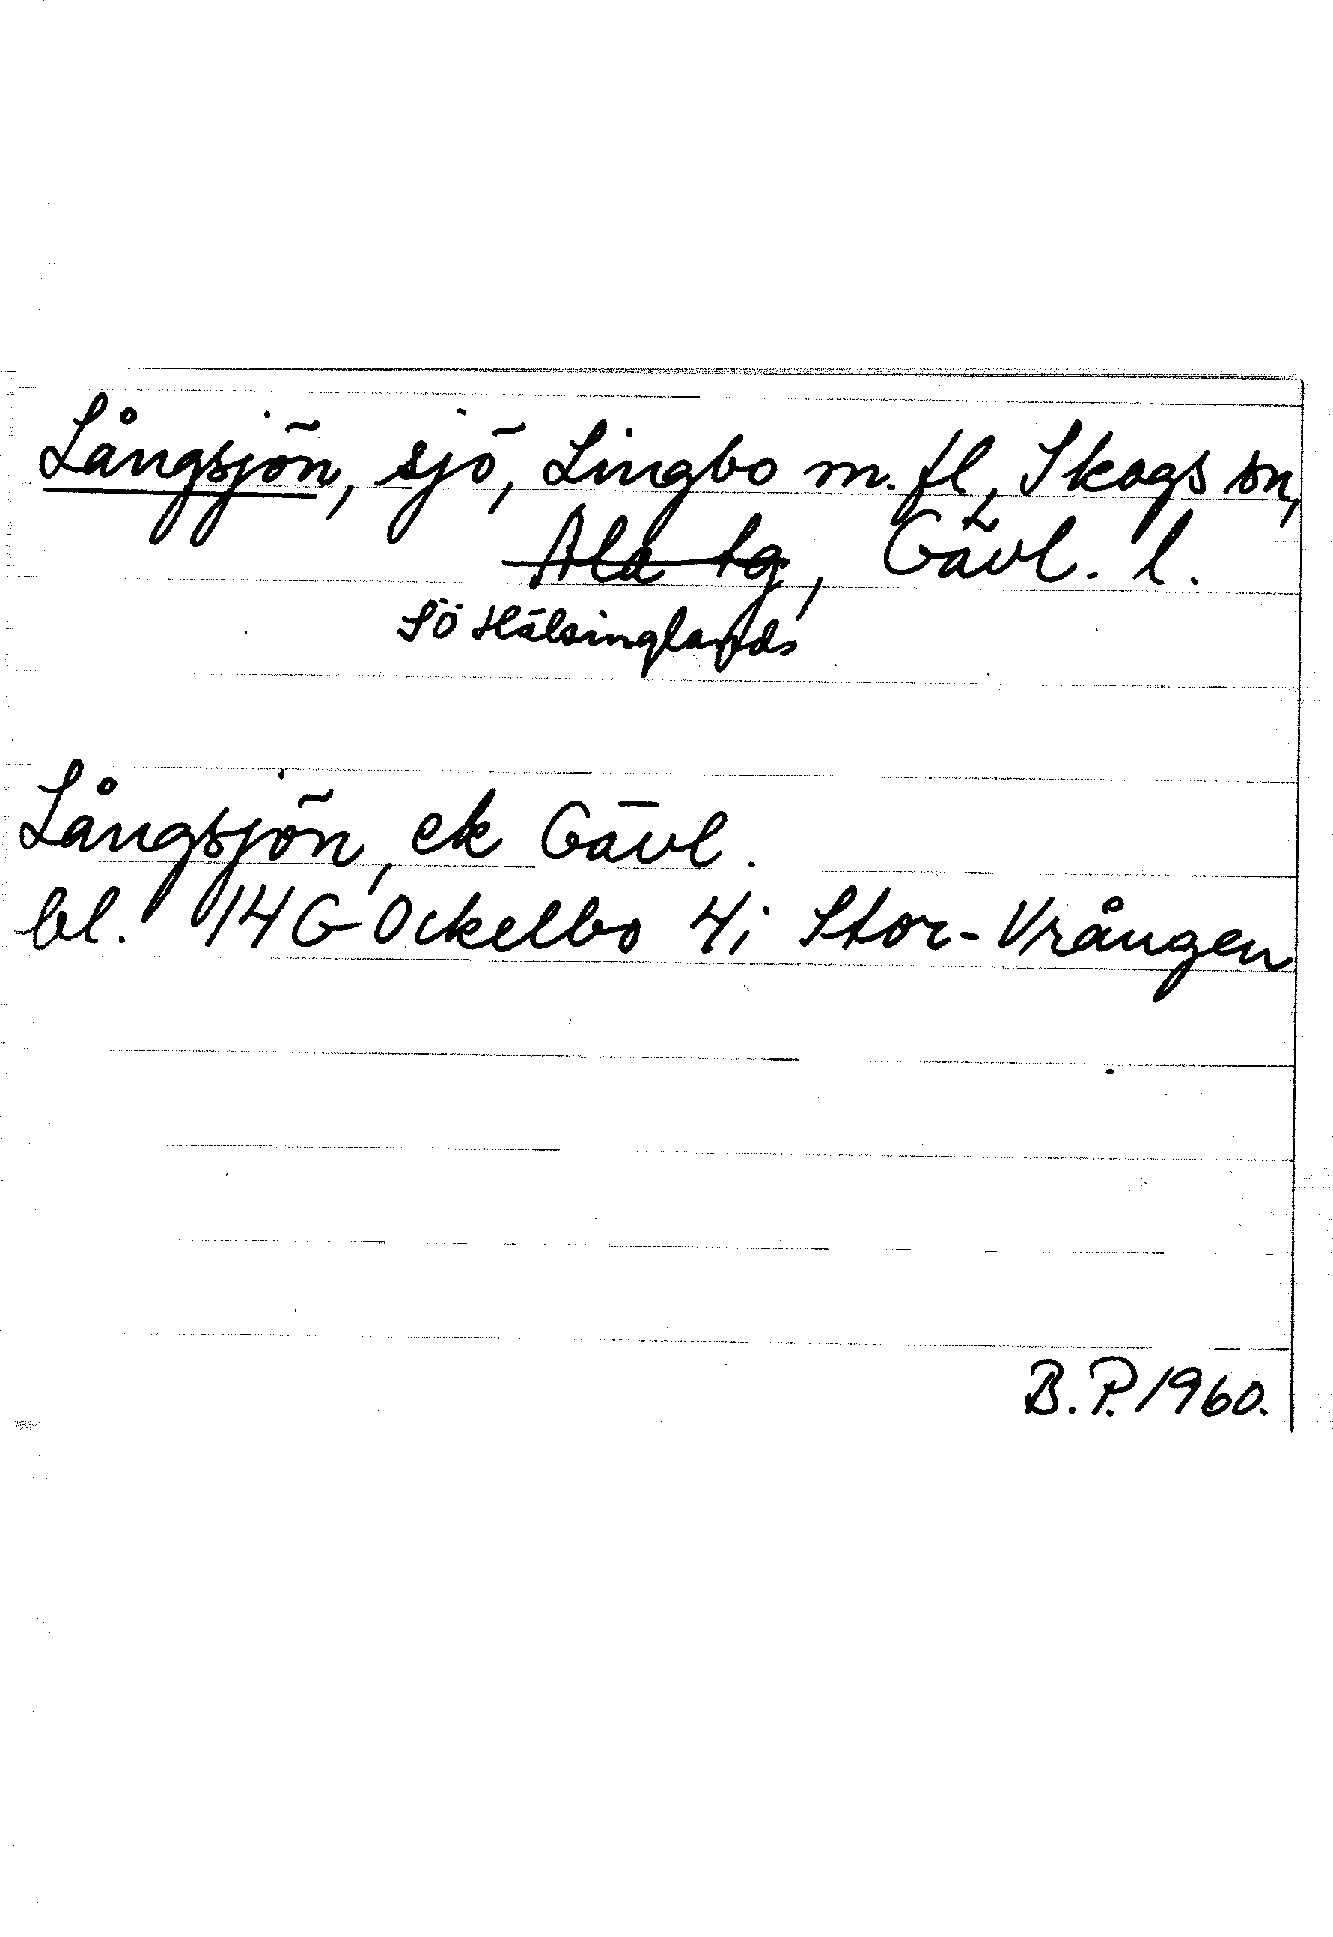 Långsjön, sjö, Lingbo m. fl., Skogs sn,
Ala tg, Gävl. l.
SÖ Hälsinglands
Långsjön, ek Gävl.
bl. 14G Ockelbo 4i Stor-Vrången
B.P. 1960.